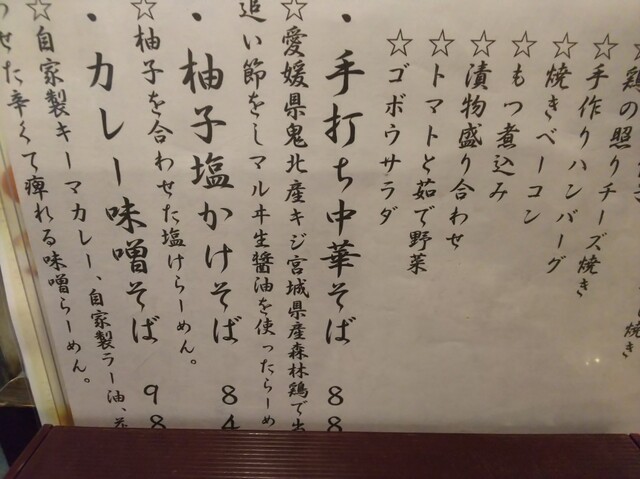 焼き
☆鶏の照りチーズ焼き
☆手作りハンバーグ
☆焼きベーコン
☆もつ煮込み
☆漬物盛り合わせ
☆トマトと茹で野菜
☆ゴボウサラダ
・手打ち中華そば 88
☆愛媛県鬼北産キジ宮城県産森林鶏で出
追い節をしマルヰ生醤油を使ったらーめ
・柚子塩かけそば 84
☆柚子を合わせた塩けらーめん。
・カレー味噌そば 98
☆自家製キーマカレー、自家製ラー油、
わせた辛くて痺れる味噌らーめん。